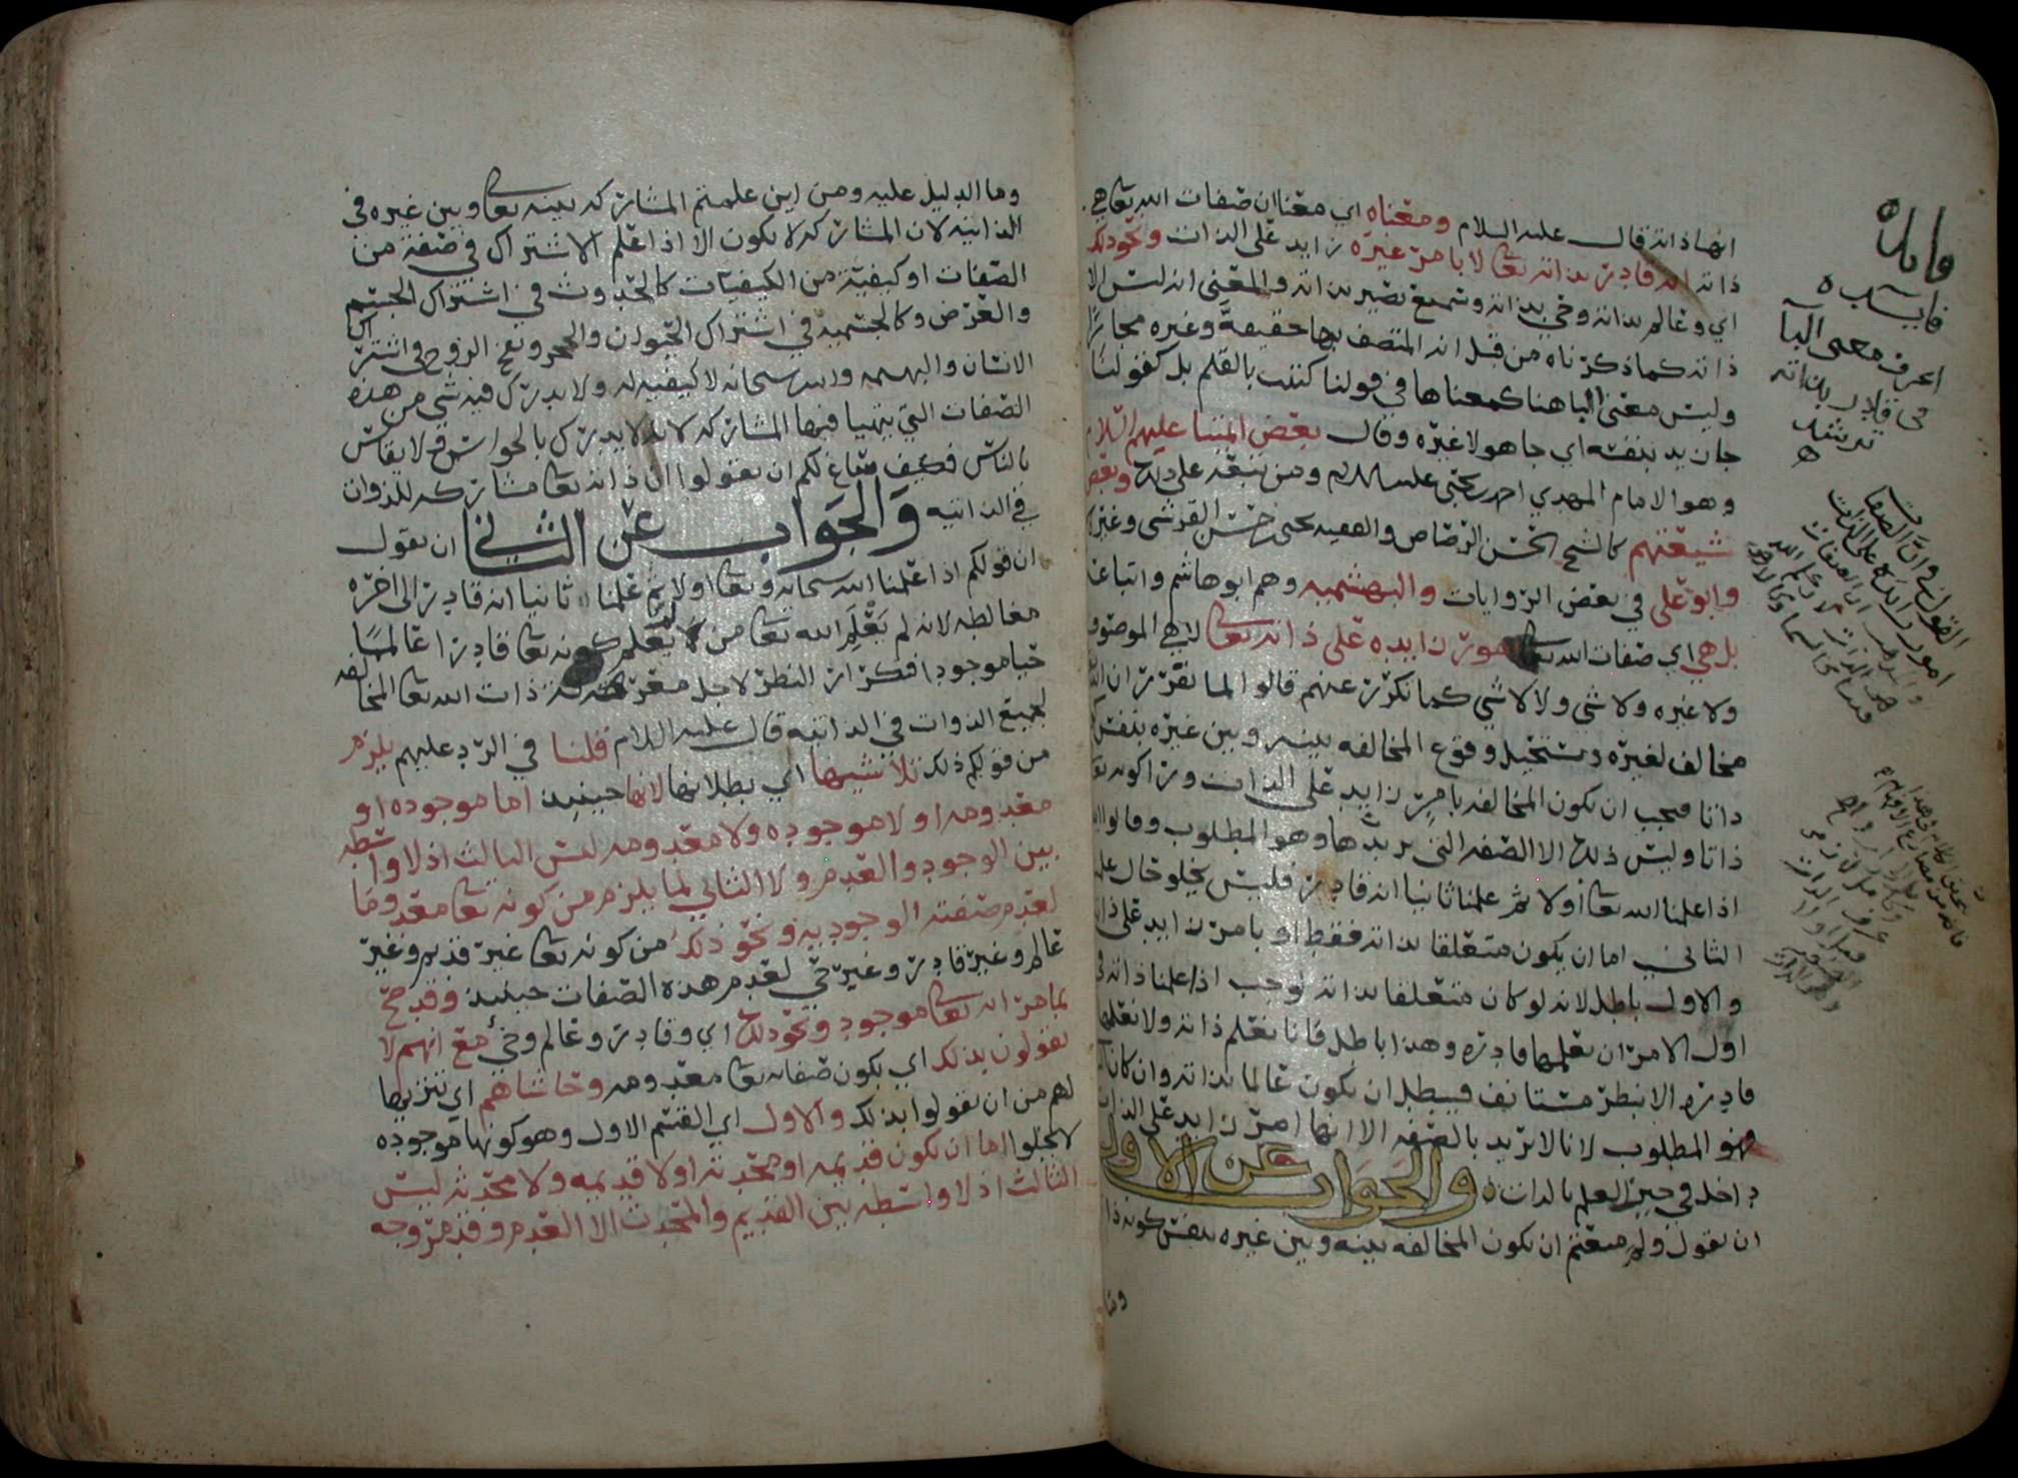 انها ذاته قال عليه السلام ومعناه اي معنا ان صفات الله تعالى هي
ذاته انه قادر بذاته تعالى لا بامر غيره زايد على الذات ونحو ذلك
اي وعالم بذاته وحي بذاته وسميع بصير بذاته والمعنى انه ليس الا
ذاته كما ذكرناه من قبل انه المتصف بها حقيقة وغيره مجازا
وليس معنى البا هنا كمعناها في قولنا كتبت بالقلم بل كقولنا
جا زيد بنفسه اي جا هو لا غيره وقال بعض ائمتنا عليهم السلام
وهو الامام المهدي احمد بن يحيى عليه السلام ومن تبعه على ذلك وبعض
شيعتهم كالشيخ الحسن الرصاص والفقيه يحيى بن حسن القرشي وغيرهم
وابو علي في بعض الروايات والبهشميه وهم ابو هاشم واتباعه
بل هي اي صفات الله تعالى امور زايده على ذاته تعالى لا هي الموصوف
ولا غيره ولا شي ولا لا شي كما تكرر عنهم قالوا لما تقرر ان الله
مخالف لغيره ويستحيل وقوع المخالفه بينه وبين غيره بنفس كونه
ذاتا فيجب ان تكون المخالفه بامر زايد على الذات ورا كونه
ذاتا وليس ذلك الا الصفه التي نريدها وهو المطلوب وقالوا
اذا علمنا الله تعالى اولا ثم علمنا ثانيا انه قادر فليس يخلو حال علمنا
الثاني اما ان يكون متعلقا بذاته فقط او بامر زايد على ذاته
والاول باطل لانه لو كان متعلقا بذاته لوجب اذا علمنا ذاته في
اول الامر ان نعلمها قادره وهذا باطل فانا نعلم ذاته ولا نعلمها
قادره الا بنظر مستانف فيبطل ان يكون عالما بذاته وان كان
فهو المطلوب لانا لا نريد بالصفه الا انها امر زايد على الذات
داخل في حيز العلم بالذات والجواب عن الاول
ان نقول ولم منعتم ان تكون المخالفه بينه وبين غيره بنفس كونه ذاتا
وما
فايده
اعرف معنى البآ
في قادر بذاته
ترشد
القول في وان الصفات
امور زايده على الذات
وما الدليل عليه ومن اين علمتم المشاركه بينه تعالى وبين غيره في
الذاتيه لان المشاركه لا تكون الا اذا علم الاشتراك في صفة من
الصفات او كيفية من الكيفيات كالحدوث في اشتراك الجسم
والعرض وكالجسميه في اشتراك الحيوان والحجر ونفخ الروح في اشتراك
الانسان والبهيمه والله سبحانه لا كيفيه له ولا يدرك فيه شي من هذه
الصفات التي يتهيا فيها المشاركه لانه لا يدرك بالحواس ولا يقاس
بالناس فكيف ساغ لكم ان تقولوا ان ذاته تعالى مشاركه للذوات
في الذاتيه والجواب عن الثاني ان نقول
ان قولكم اذا علمنا الله سبحانه وتعالى اولا ثم علمنا ثانيا انه قادر الى اخره
مغالطه لانه لم يعلم الله تعالى من لا يعلم كونه تعالى قادرا عالما
حيا موجودا فكرار النظر لاجل معرفة ذات الله تعالى المخالفه
لجميع الذوات في الذاتيه قال عليه السلام قلنا في الرد عليهم يلزم
من قولكم ذلك تلاشيها اي بطلانها لانها حينيذ اما موجوده او
معدومه او لا موجوده ولا معدومه ليس الثالث اذ لا واسطه
بين الوجود والعدم ولا الثاني لما يلزم من كونه تعالى معدوما
لعدم صفته الوجوديه ونحو ذلك من كونه تعالى غير قديم وغير
عالم وغير قادر وغير حي لعدم هذه الصفات حينيذ وقد صح
بما مر انه تعالى موجود ونحو ذلك اي وقادر وعالم وحي مع انهم لا
يقولون بذلك اي بكون صفاته تعالى معدومه وحاشاهم اي تنزيها
لهم من ان يقولوا بذلك والاول اي القسم الاول وهو كونها موجوده
لا يخلوا اما ان تكون قديمه او محدثه او لا قديمه ولا محدثه ليس
الثالث اذ لا واسطه بين القديم والمحدث الا العدم وقد مر وجه